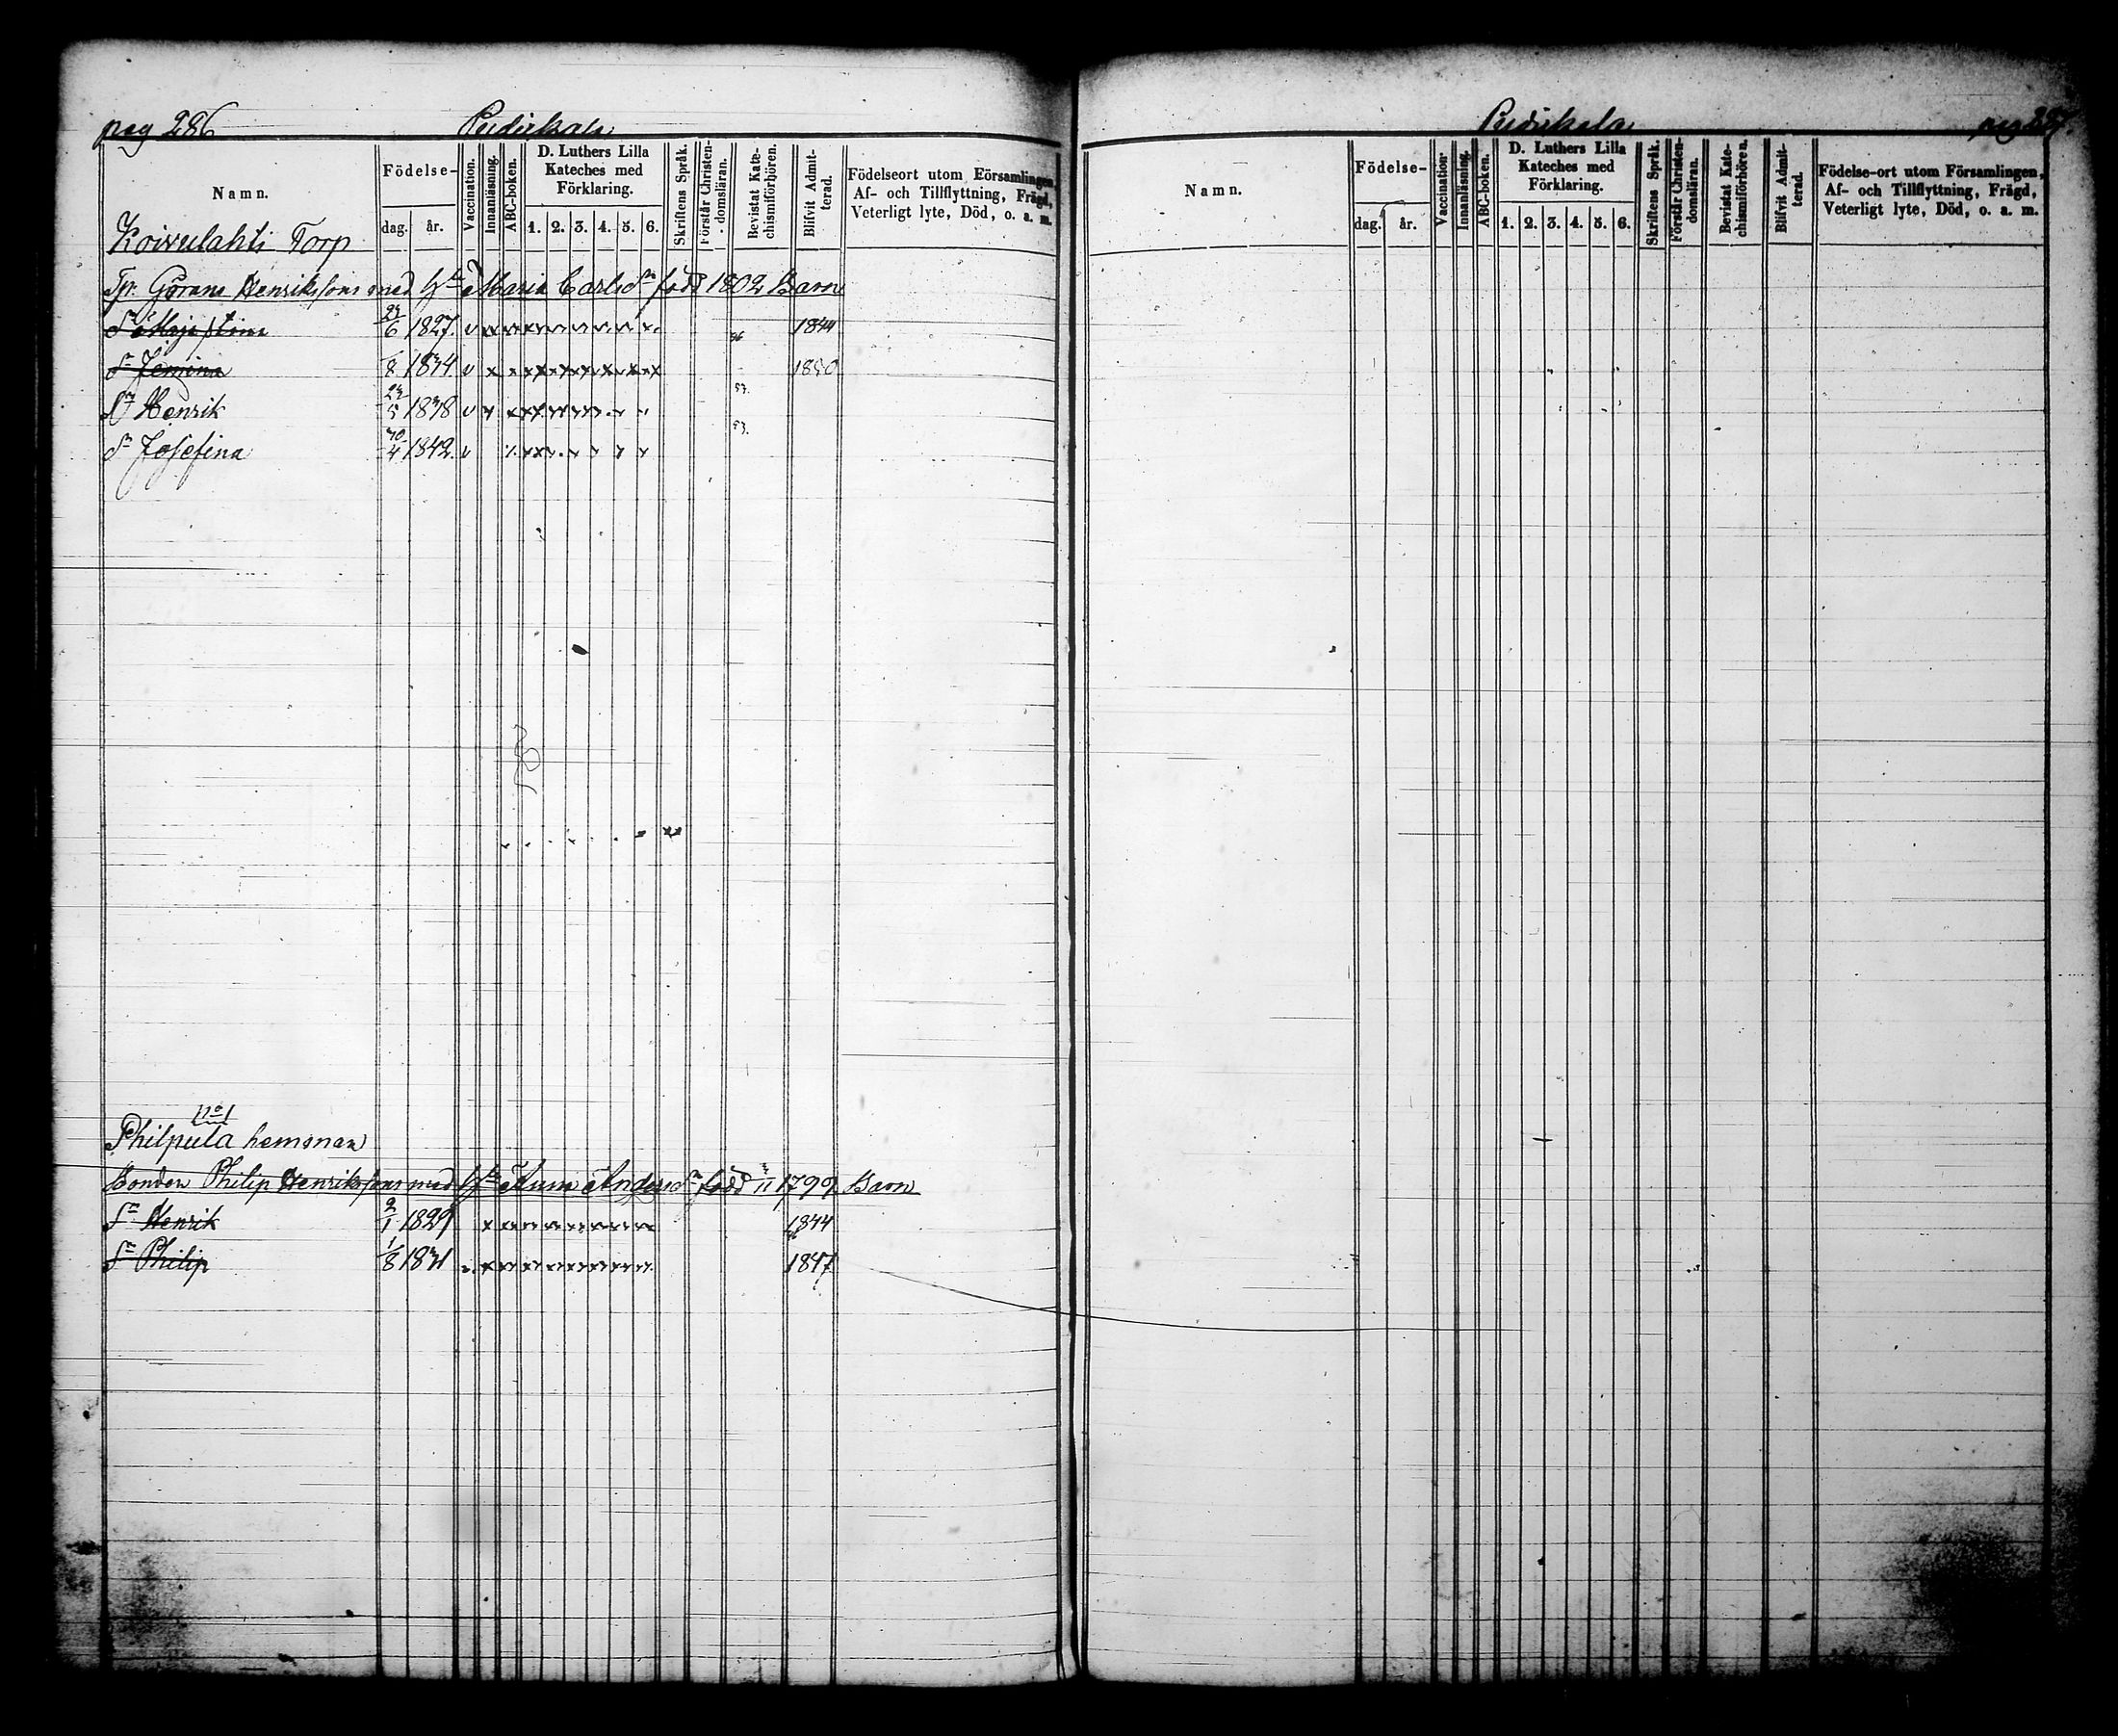 pag 286
Namn.
Födelse-
dag.
år.
Vaccination.
Innanläsning.
ABC-boken.
D. Luthers Lilla
Kateches med
Förklaring.
1. 2. 3. 4. 5. 6.
Skriftens Språk.
Förstår Christen-
domsläran.
Bevistat Kate-
chismiförhören.
Blifvit Admit-
terad.
Födelseort utom Eörsamlingen,
Af- och Tillflyttning, Frägd,
Veterligt lyte, Död, o. a. m.
Koivulahti Torp
Tpr. Görans Henrikssons med Maria Carlsdr född 1802 Barn
Maja Stina 23/6 1827. 1844
Jemina 8 1834 1850
Henrik 23/5 1838
Josefina 4 1842.
No 1
Philpula hemman
Bonden Philip Henrikssons med Anna Andersdr född 11 1799. Barn
Henrik 2/1 1829 1844
Philip 1/8 1831 1847
pag 287.
Namn.
Födelse-
dag.
år.
Vaccination.
Innanläsning.
ABC-boken.
D. Luthers Lilla
Kateches med
Förklaring.
1. 2. 3. 4. 5. 6.
Skriftens Språk.
Förstår Christen-
domsläran.
Bevistat Kate-
chismiförhören.
Blifvit Admit-
terad.
Födelse-ort utom Församlingen,
Af- och Tillflyttning, Frägd,
Veterligt lyte, Död, o. a. m.